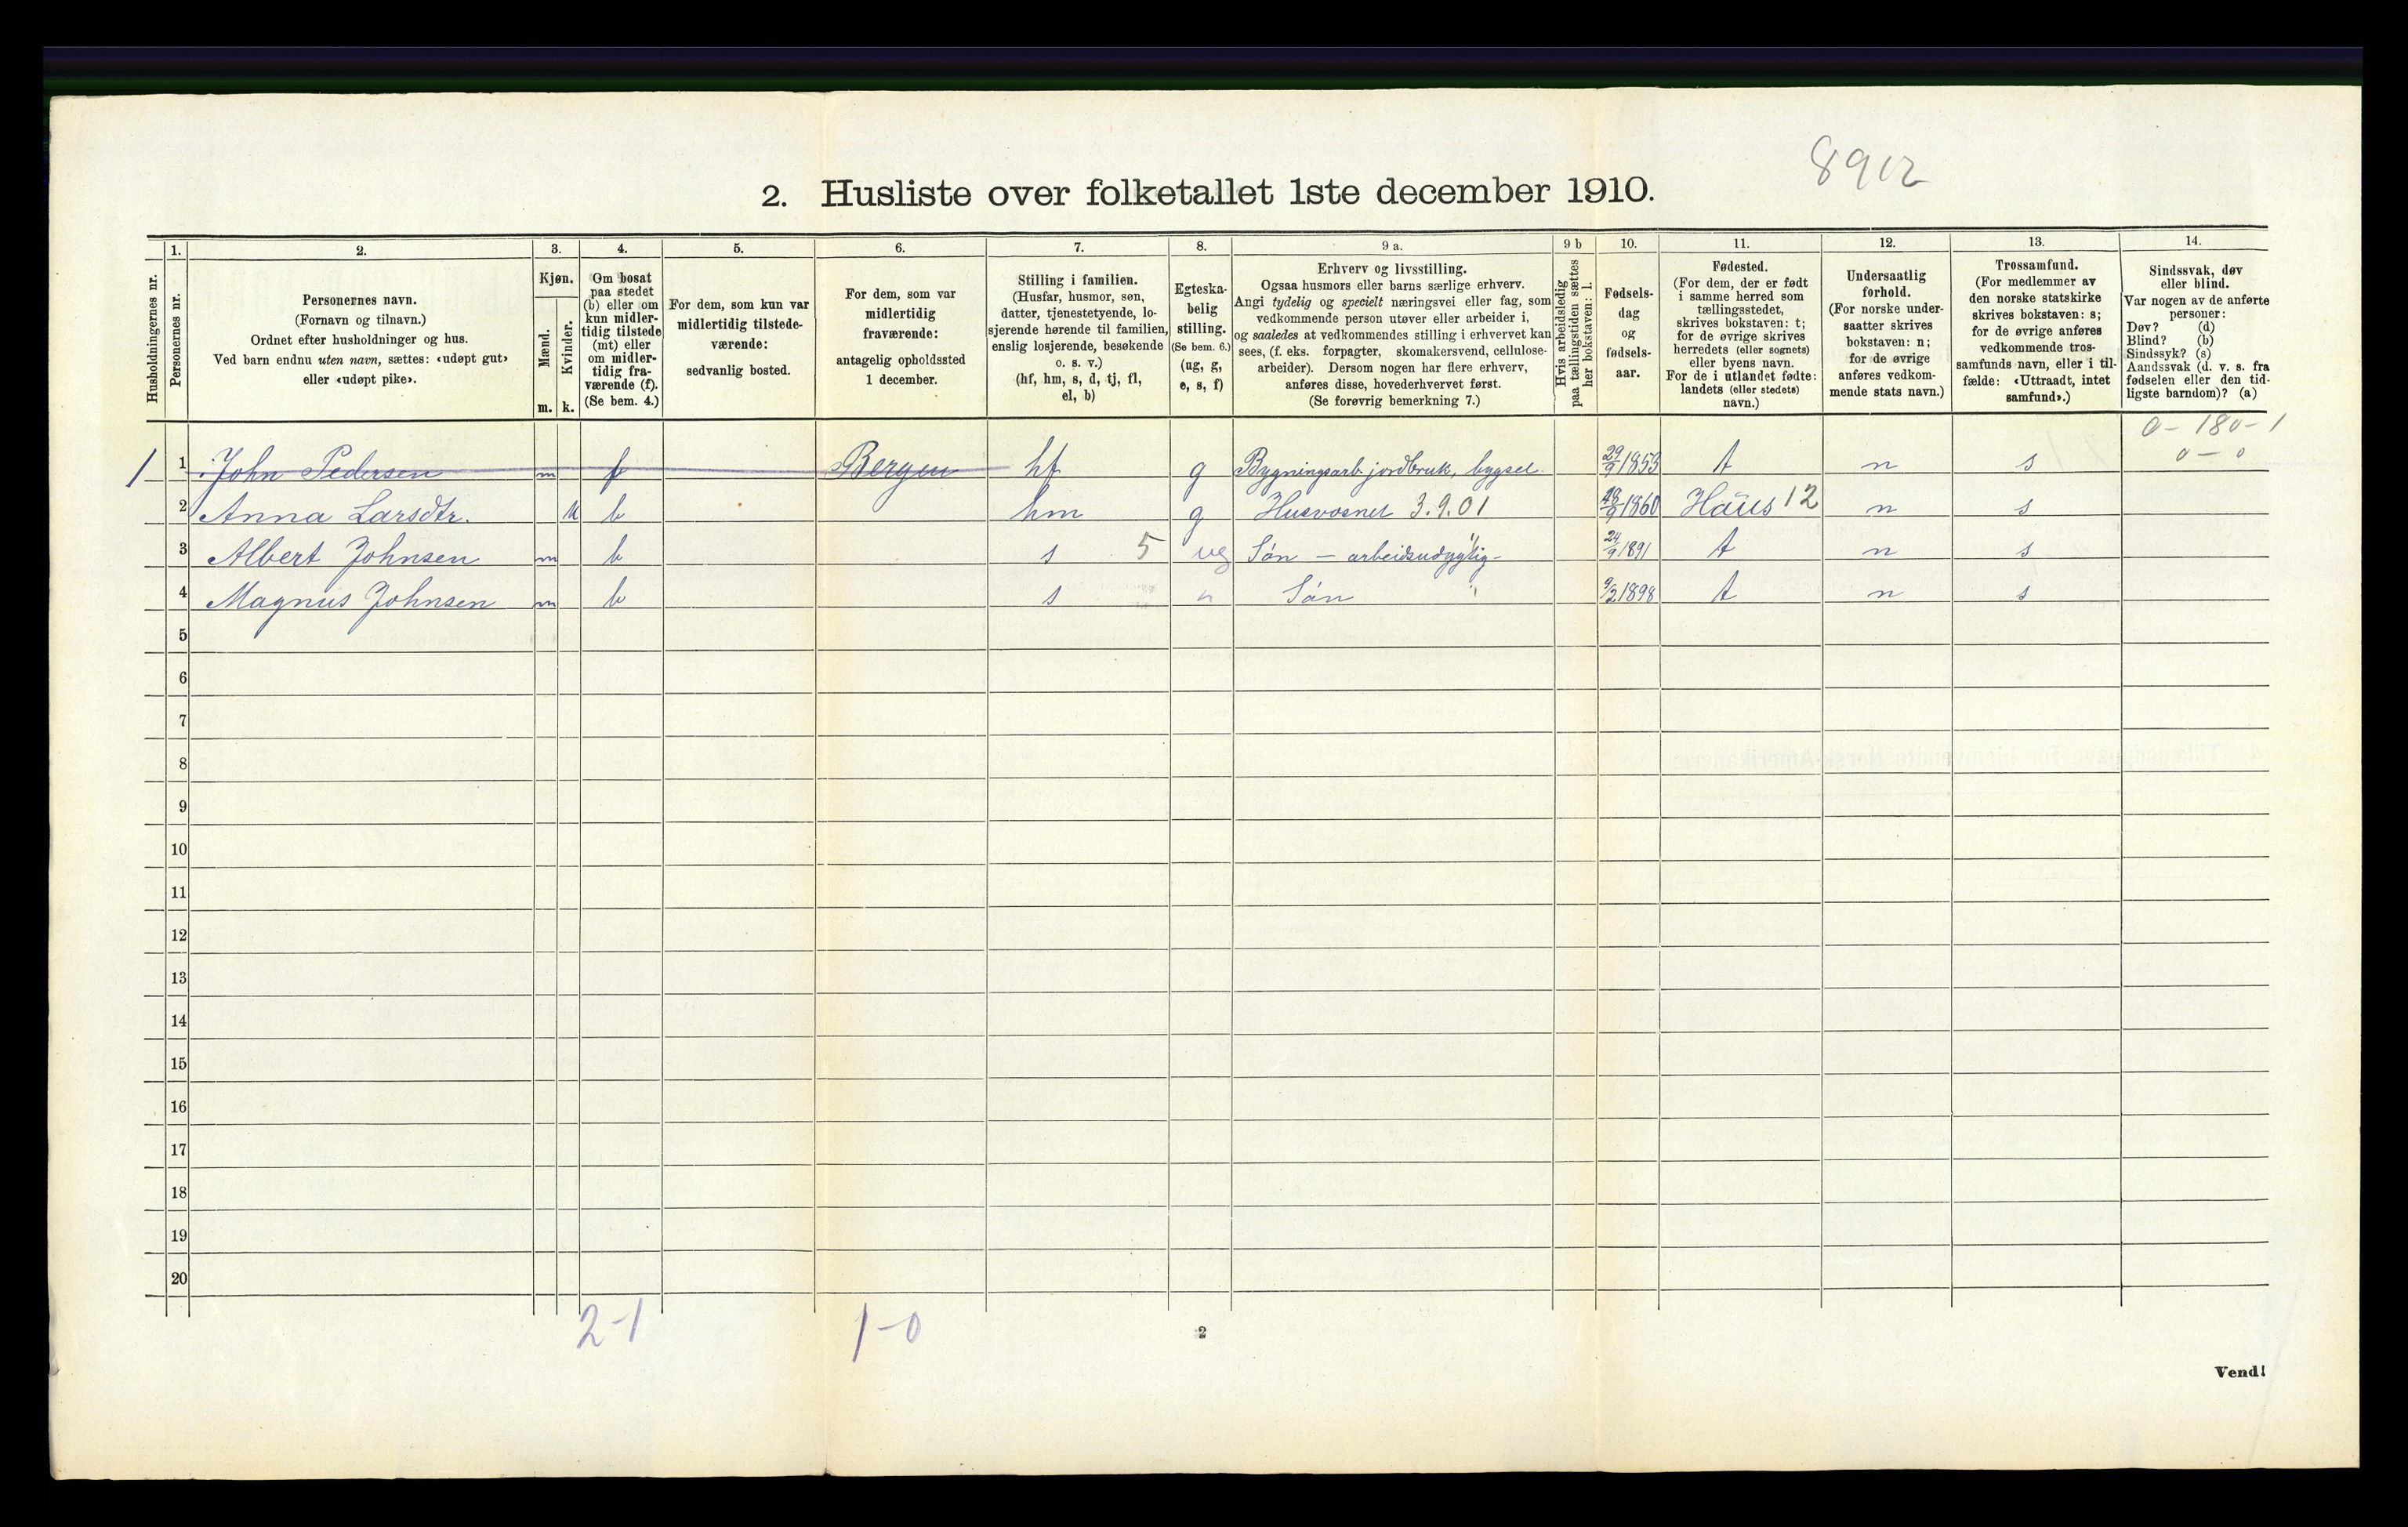 8912
2. Husliste over folketallet 1ste december 1910.
Husholdningernes nr.
1.
Personernes nr.
2.
Personernes navn.
(Fornavn og tilnavn.)
Ordnet efter husholdninger og hus.
Ved barn endnu uten navn, sættes: «udøpt gut»
eller «udøpt pike».
3.
Kjøn.
Mænd.
Kvinder.
m. k.
4.
Om bosat
paa stedet
(b) eller om
kun midler-
tidig tilstede
(mt) eller
om midler-
tidig fra-
værende (f).
(Se bem. 4.)
5.
For dem, som kun var
midlertidig tilstede-
værende:
sedvanlig bosted.
6.
For dem, som var
midlertidig
fraværende:
antagelig opholdssted
1 december.
7.
Stilling i familien.
(Husfar, husmor, søn,
datter, tjenestetyende, lo-
sjerende hørende til familien,
enslig losjerende, besøkende
o. s. v.)
(hf, hm, s, d, tj, fl,
el, b)
8.
Egteska-
belig
stilling.
(Se bem. 6.)
(ug, g,
e, s, f)
9 a.
Erhverv og livsstilling.
Ogsaa husmors eller barns særlige erhverv.
Angi tydelig og specielt næringsvei eller fag, som
vedkommende person utøver eller arbeider i,
og saaledes at vedkommendes stilling i erhvervet kan
sees, (f. eks. forpagter, skomakersvend, cellulose-
arbeider). Dersom nogen har flere erhverv,
anføres disse, hovederhvervet først.
(Se forøvrig bemerkning 7.)
9 b
Hvis arbeidsledig
paa tællingstiden sættes
her bokstaven: l.
10.
Fødsels-
dag
og
fødsels-
aar.
11.
Fødested.
(For dem, der er født
i samme herred som
tællingsstedet,
skrives bokstaven: t;
for de øvrige skrives
herredets (eller sognets)
eller byens navn.
For de i utlandet fødte:
landets (eller stedets)
navn.)
12.
Undersaatlig
forhold.
(For norske under-
saatter skrives
bokstaven: n;
for de øvrige
anføres vedkom-
mende stats navn.)
13.
Trossamfund.
(For medlemmer av
den norske statskirke
skrives bokstaven: s;
for de øvrige anføres
vedkommende tros-
samfunds navn, eller i til-
fælde: «Uttraadt, intet
samfund».)
14.
Sindssvak, døv
eller blind.
Var nogen av de anførte
personer:
Døv? (d)
Blind? (b)
Sindssyk? (s)
Aandssvak (d. v. s. fra
fødselen eller den tid-
ligste barndom)? (a)
0 - 180 - 1
0 - 0
1 1 John Pedersen m f Bergen hf g Bygningsarb. jordbruk, bygsel. 29/9 1853 t n s
2 Anna Larsdtr. k b hm g Husvosnet 3.9.01 /9 1860 Haus 12 n s
3 Albert Johnsen m b s 5 ug Søn — arbeidsudygtig - 24/9 1891 t n s
4 Magnus Johnsen m b s " Søn " 9/2 1898 t n s
5
6
7
8
9
10
11
12
13
14
15
16
17
18
19
20
2-1 1-0
2
Vend!